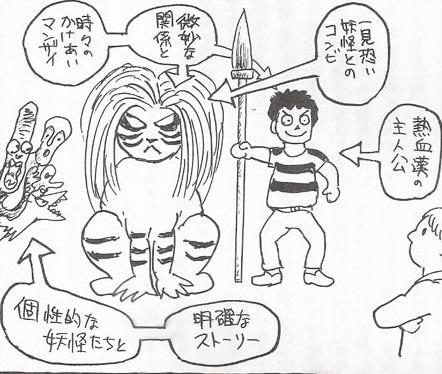 一見恐い
妖怪との
コンビ
微妙な
関係と
時々の
かけあい
マンザイ
熱血漢の
主人公
個性的な
妖怪たちと
明確な
ストーリー